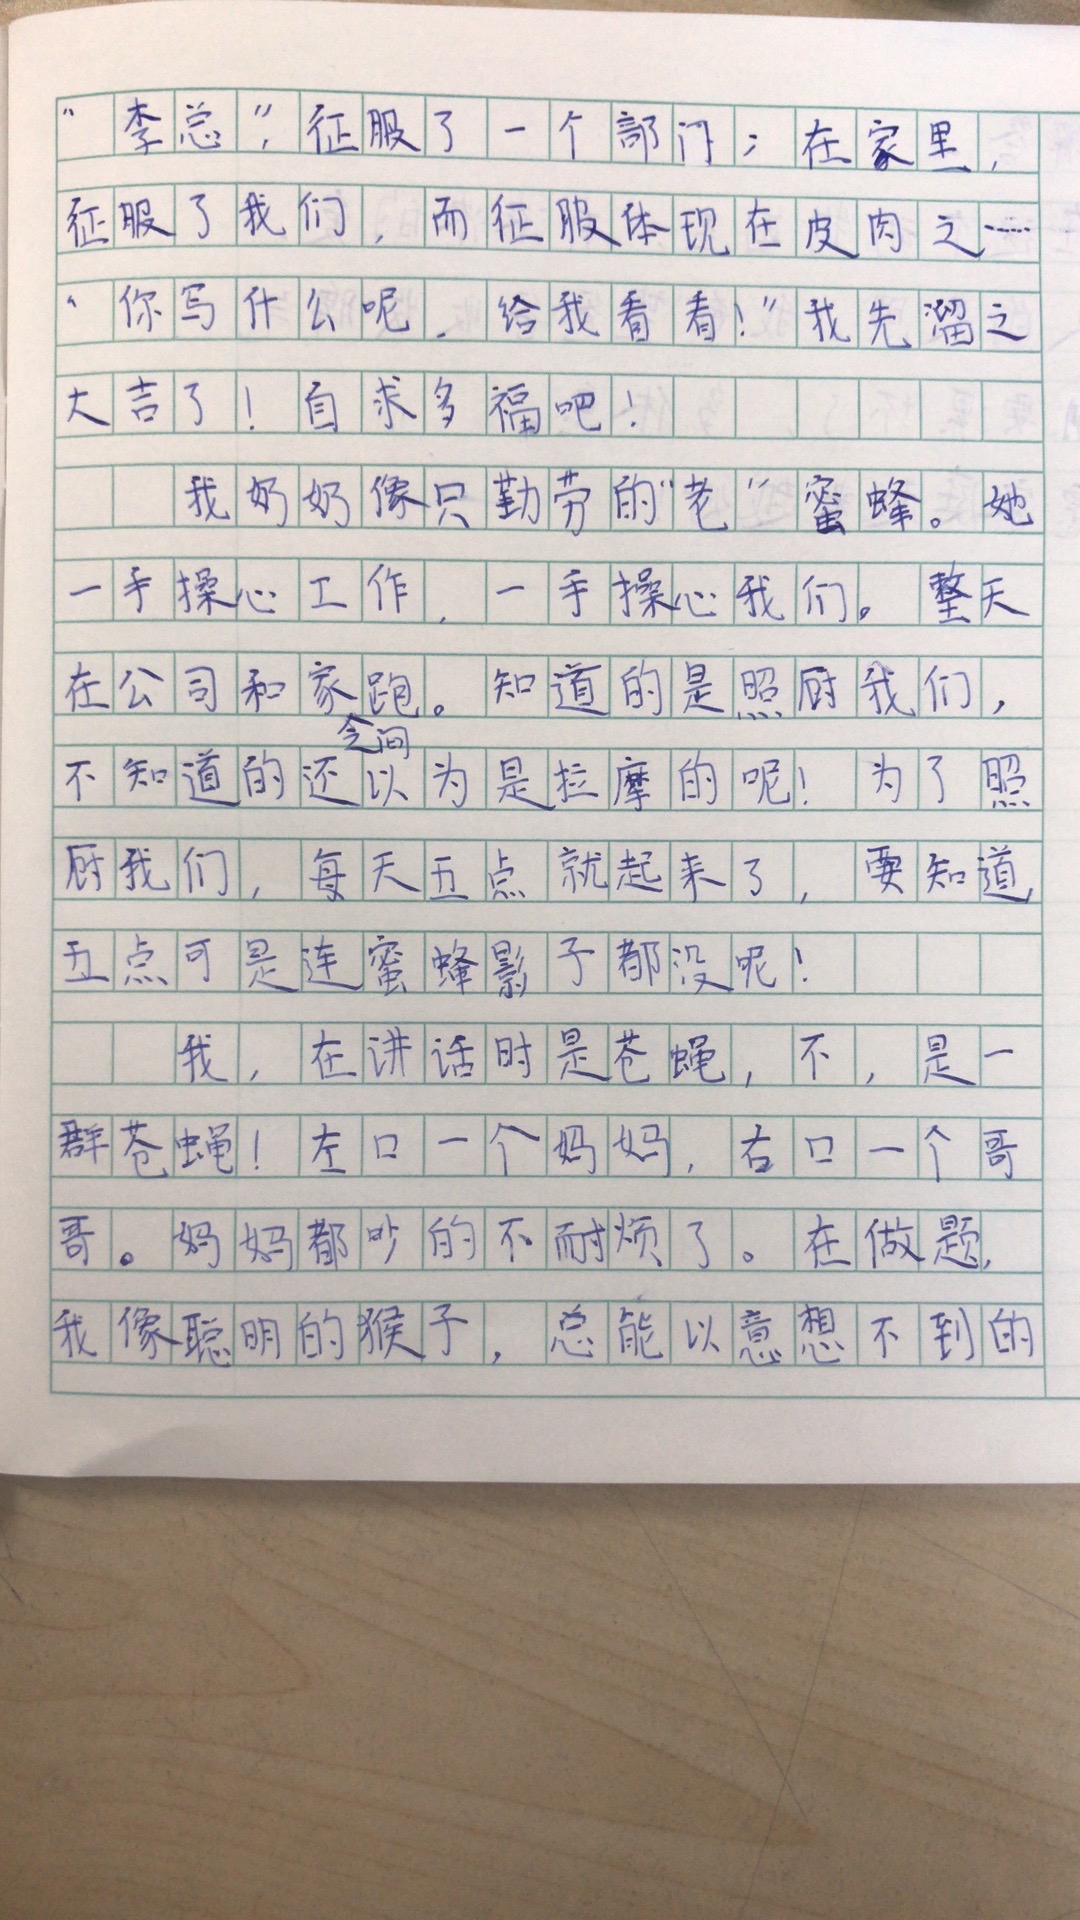 “李总”,征服了一个部门；在家里,
征服了我们,而征服体现在皮肉之……
“你写什么呢,给我看看!”我先溜之
大吉了!自求多福吧!
我奶奶像只勤劳的“老”蜜蜂。她
一手操心工作,一手操心我们。整天
在公司和家跑。知道的是照厨我们,
之间
不知道的还以为是拉摩的呢!为了照
厨我们,每天五点就起来了,要知道,
五点可是连蜜蜂影子都没呢!
我,在讲话时是苍蝇,不,是一
群苍蝇!左口一个妈妈,右口一个哥
哥。妈妈都吵的不耐烦了。在做题,
我像聪明的猴子,总能以意想不到的